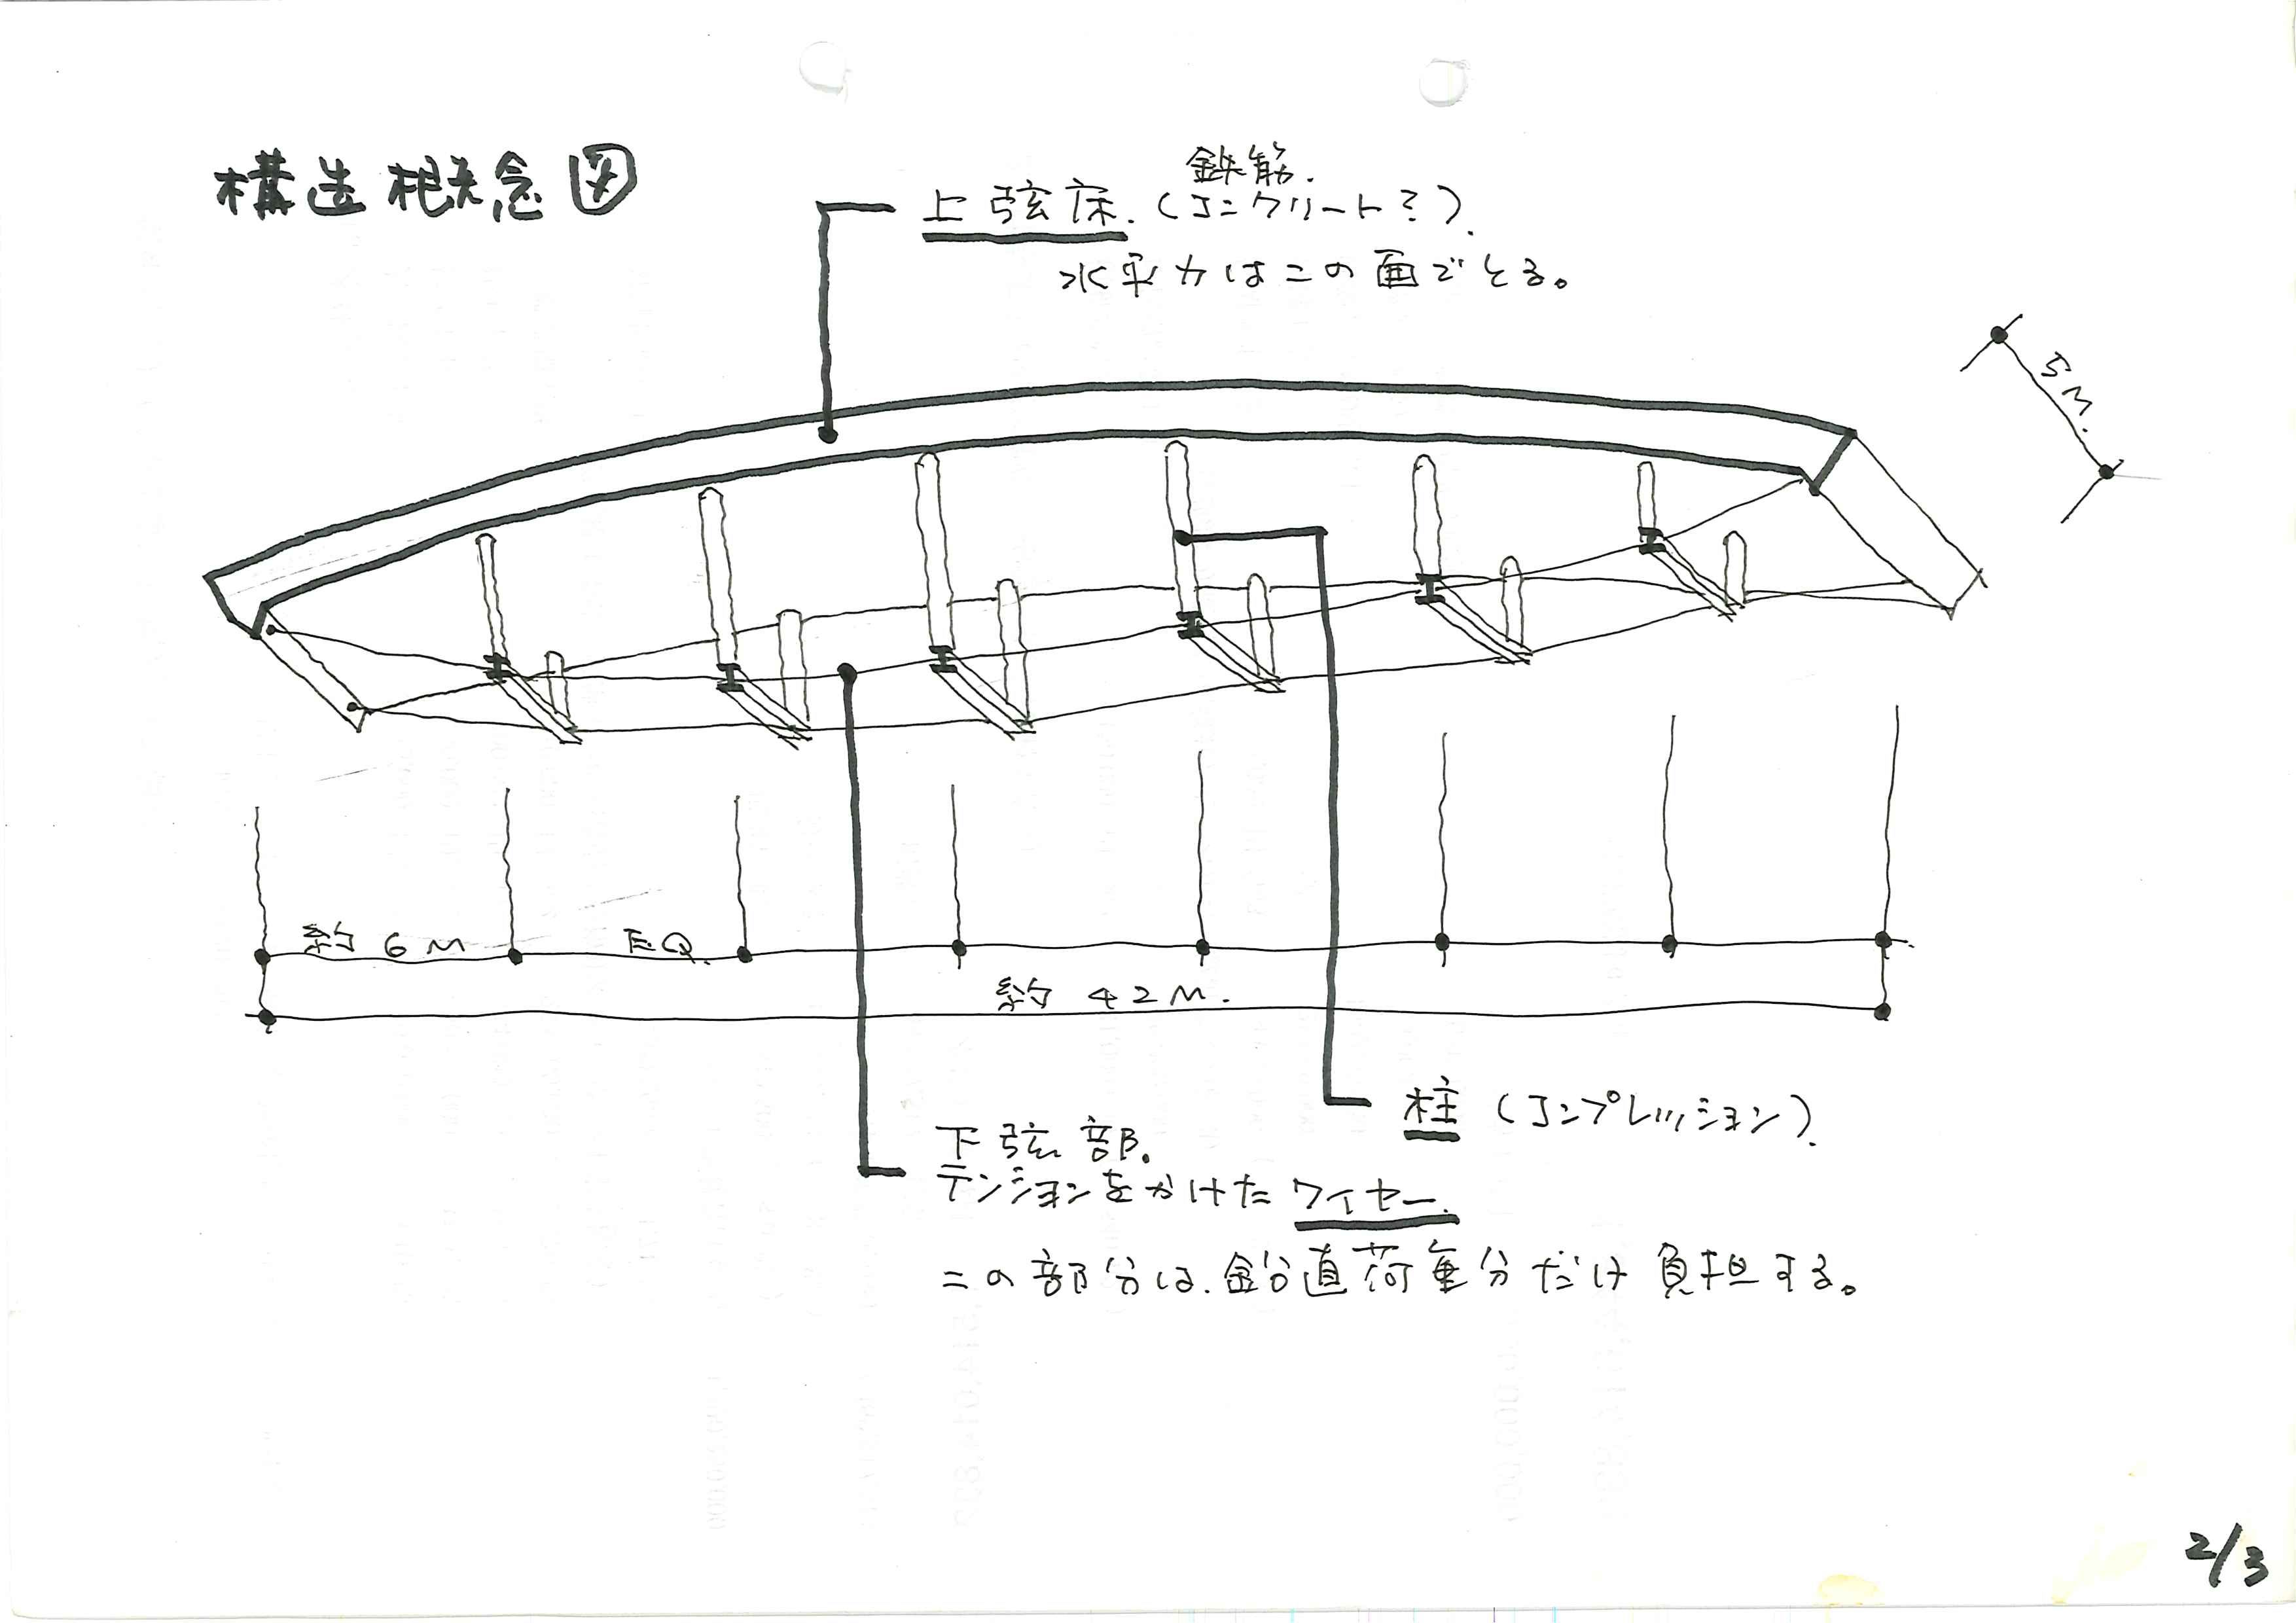 構造概念図
鉄筋.
上弦床.(コンクリート?).
水平力はこの面でとる。
5M.
約6M
EQ.
約42M.
柱(コンプレッション).
下弦部.
テンションをかけたワイヤー.
この部分は.鉛直荷重分だけ負担する。
2/3